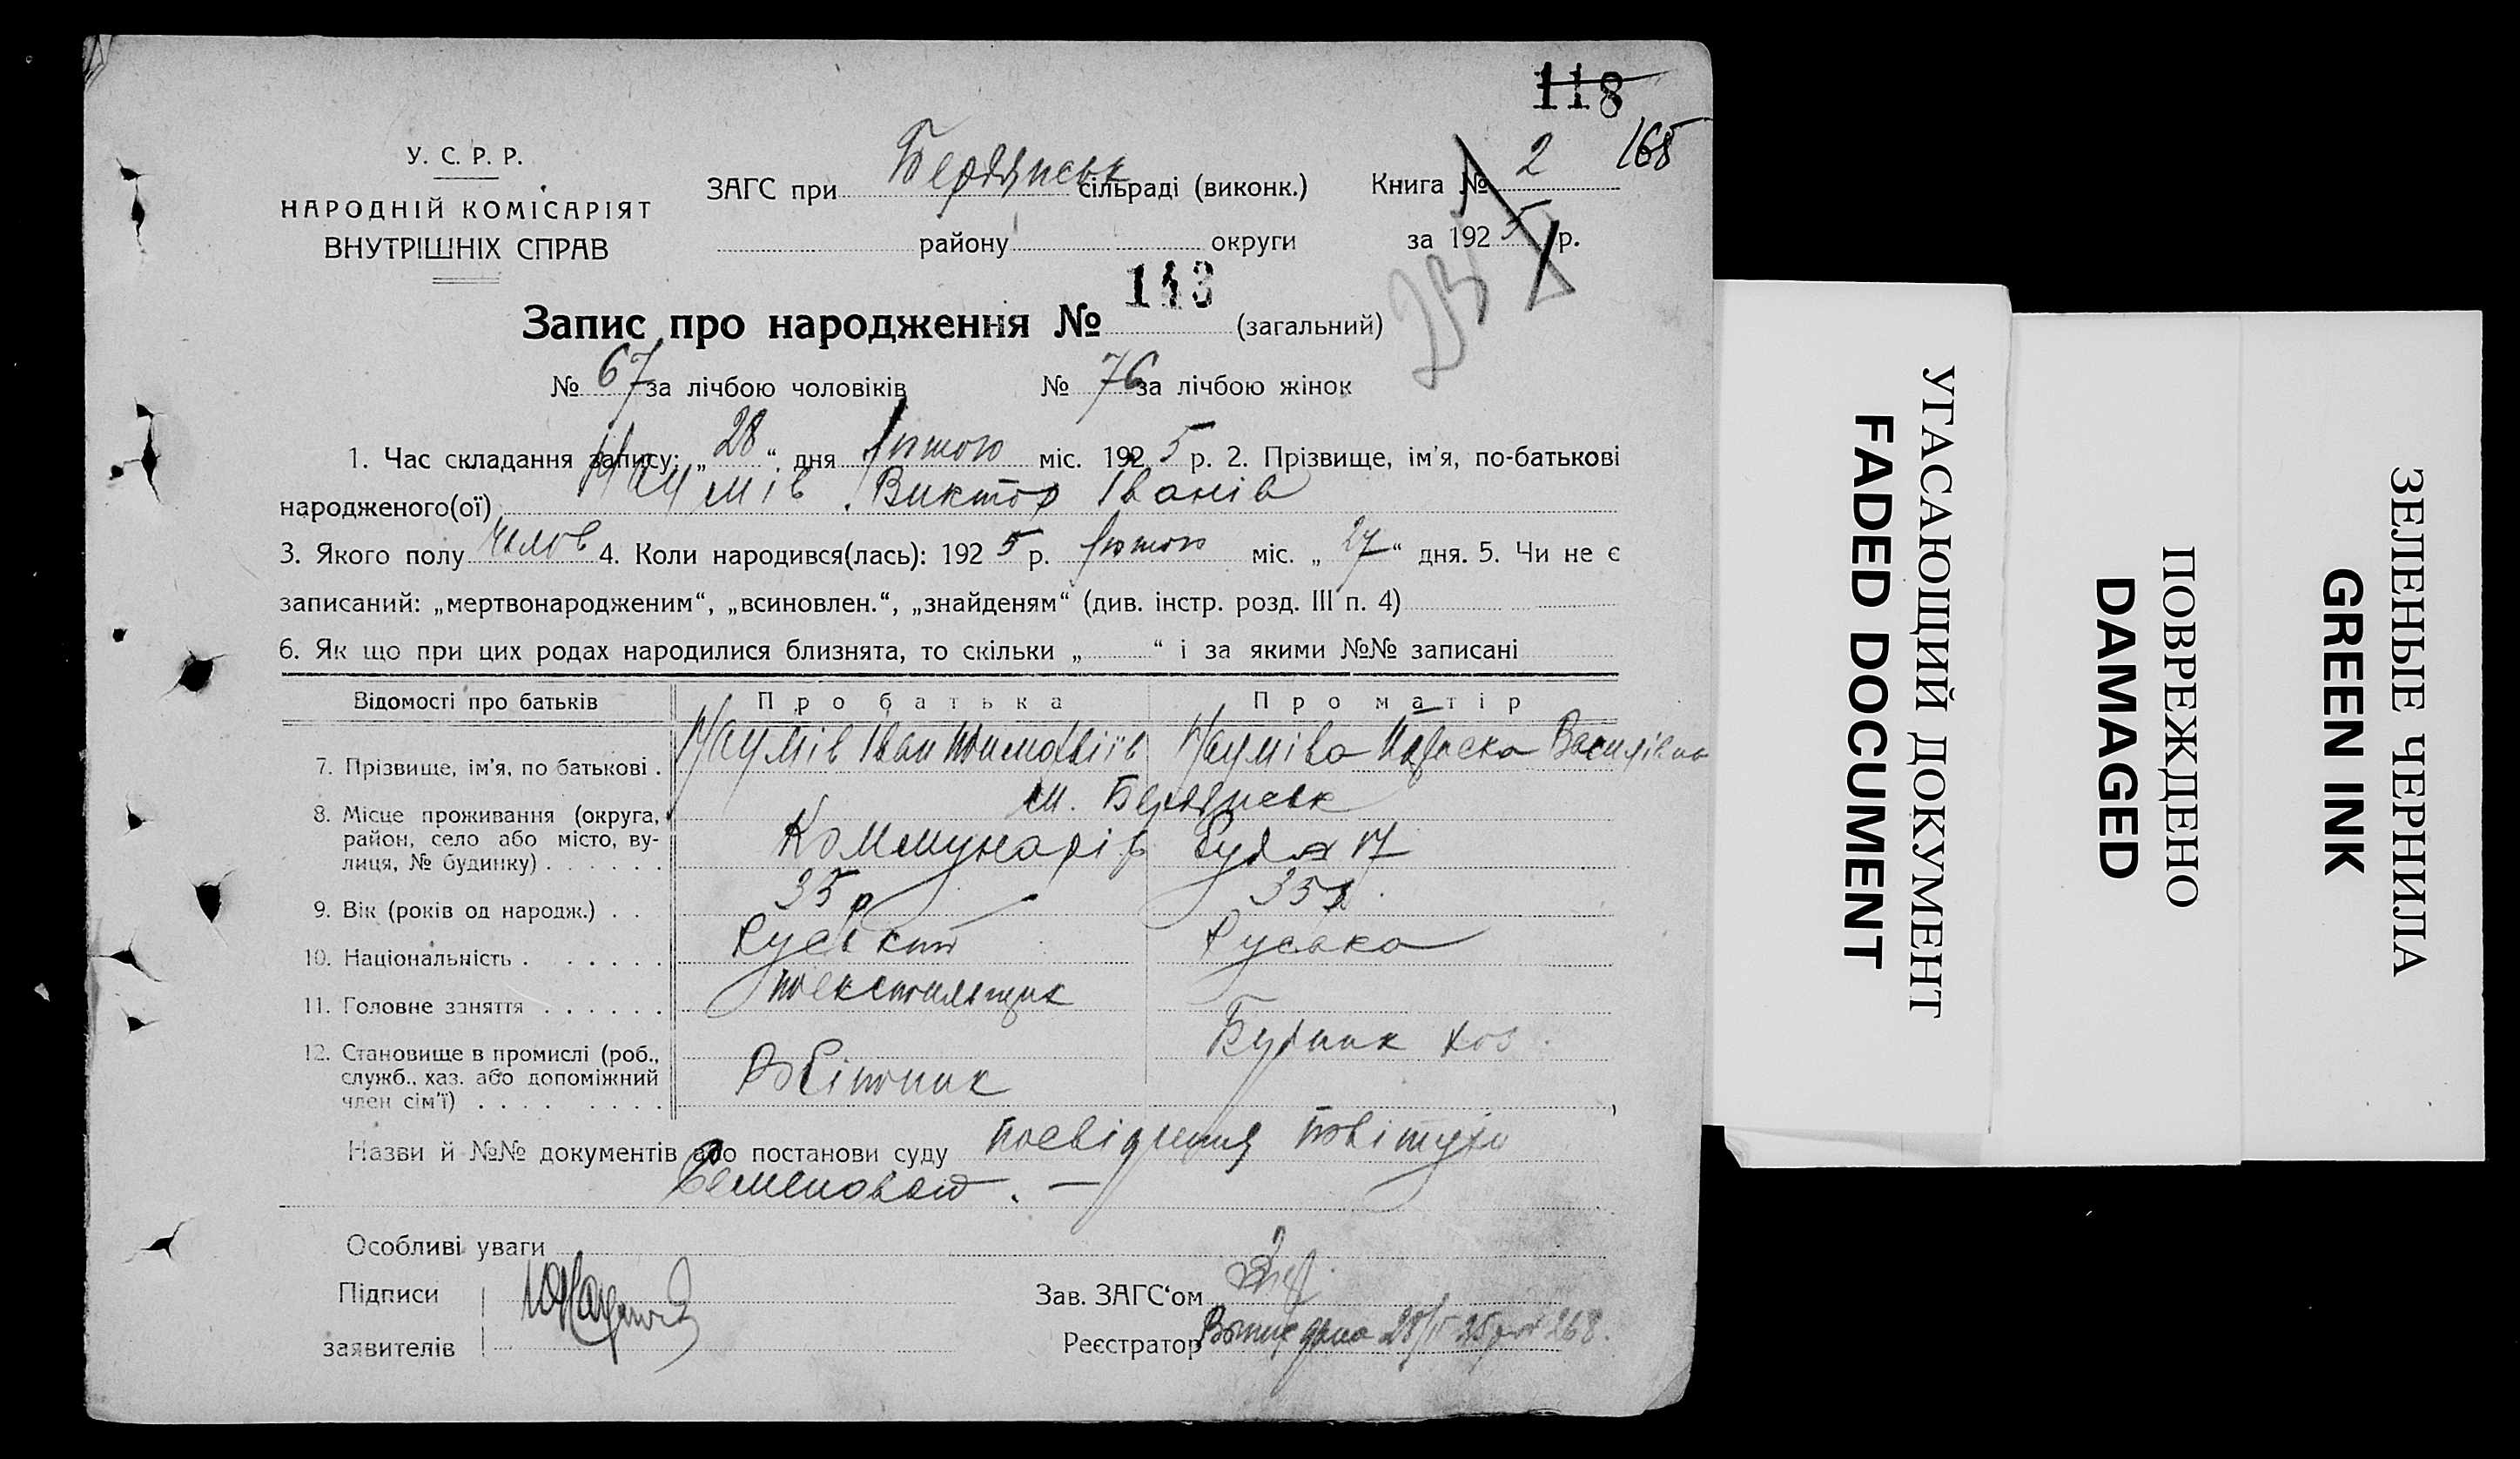 118
165
У. С. Р. Р.
НАРОДНІЙ КОМІСАРІЯТ
ВНУТРІШНІХ СПРАВ
ЗАГС при Бердянськ сільраді (виконк.) Книга № 2
району округи за 1925 р.
Запис про народження № 143 (загальний)
№ 67 за лічбою чоловіків № 76 за лічбою жінок
1. Час складання запису: „28“ дня лютого міс. 1925 р. 2. Прізвище, ім'я, по-батькові
народженого(ої) Наумів Виктор Іванів
3. Якого полу чолов 4. Коли народився(лась): 1925 р. лютого міс. „27“ дня. 5. Чи не є
записаний: „мертвонародженим“, „всиновлен.“, „знайденям“ (див. інстр. розд. III п. 4)
6. Як що при цих родах народилися близнята, то скільки „ “ і за якими №№ записані
Відомості про батьків Про батька Про матір
7. Прізвище, ім'я, по батькові . Наумів Іван Тимофіїв Наумівa Параска Василівна
8. Місце проживання (округа, район, село або місто, вулиця, № будинку) . . . . . .
м. Бердянськ
Коммунарів буд 17
9. Вік (років од народж.) . . 35 р 35 р
10. Національність . . . . . . Руський Руська
11. Головне заняття . . . . . . текстильщик
12. Становище в промислі (роб.,
служб., хаз. або допоміжний
член сім'ї) . . . . . . . .
Робітник
Будник хоз.
Назви й №№ документів або постанови суду посвідчення повітухи
Семеновой. —
Особливі уваги
Підписи
заявителів
Зав. ЗАГС'ом
Реєстратор 28/II 25 268.
УГАСАЮЩИЙ ДОКУМЕНТ
FADED DOCUMENT
ПОВРЕЖДЕНО
DAMAGED
ЗЕЛЕНЫЕ ЧЕРНИЛА
GREEN INK